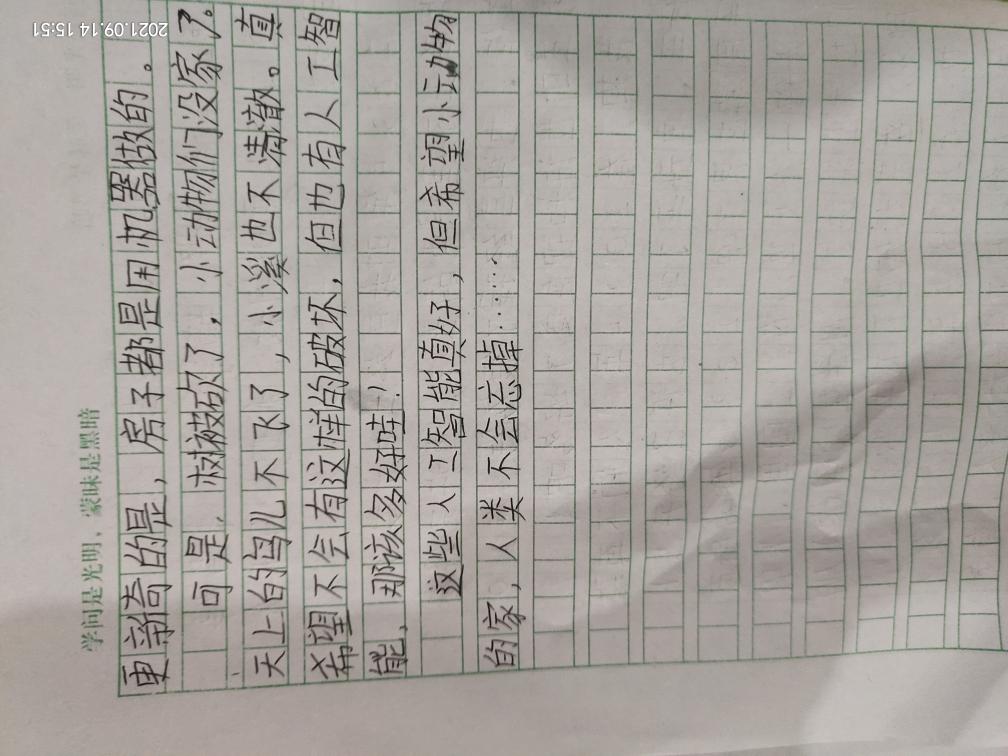 学问是光明，蒙昧是黑暗
更新奇的是，房子都是用机器做的。
可是，树被砍了，小动物们没家了。
天上的鸟儿不飞了，小溪也不清澈。真
希望不会有这样的破坏，但也有人工智
能，那该多好哇！
这些人工智能真好，但希望小动物
的家，人类不会忘掉……
2021.09.14 15:51